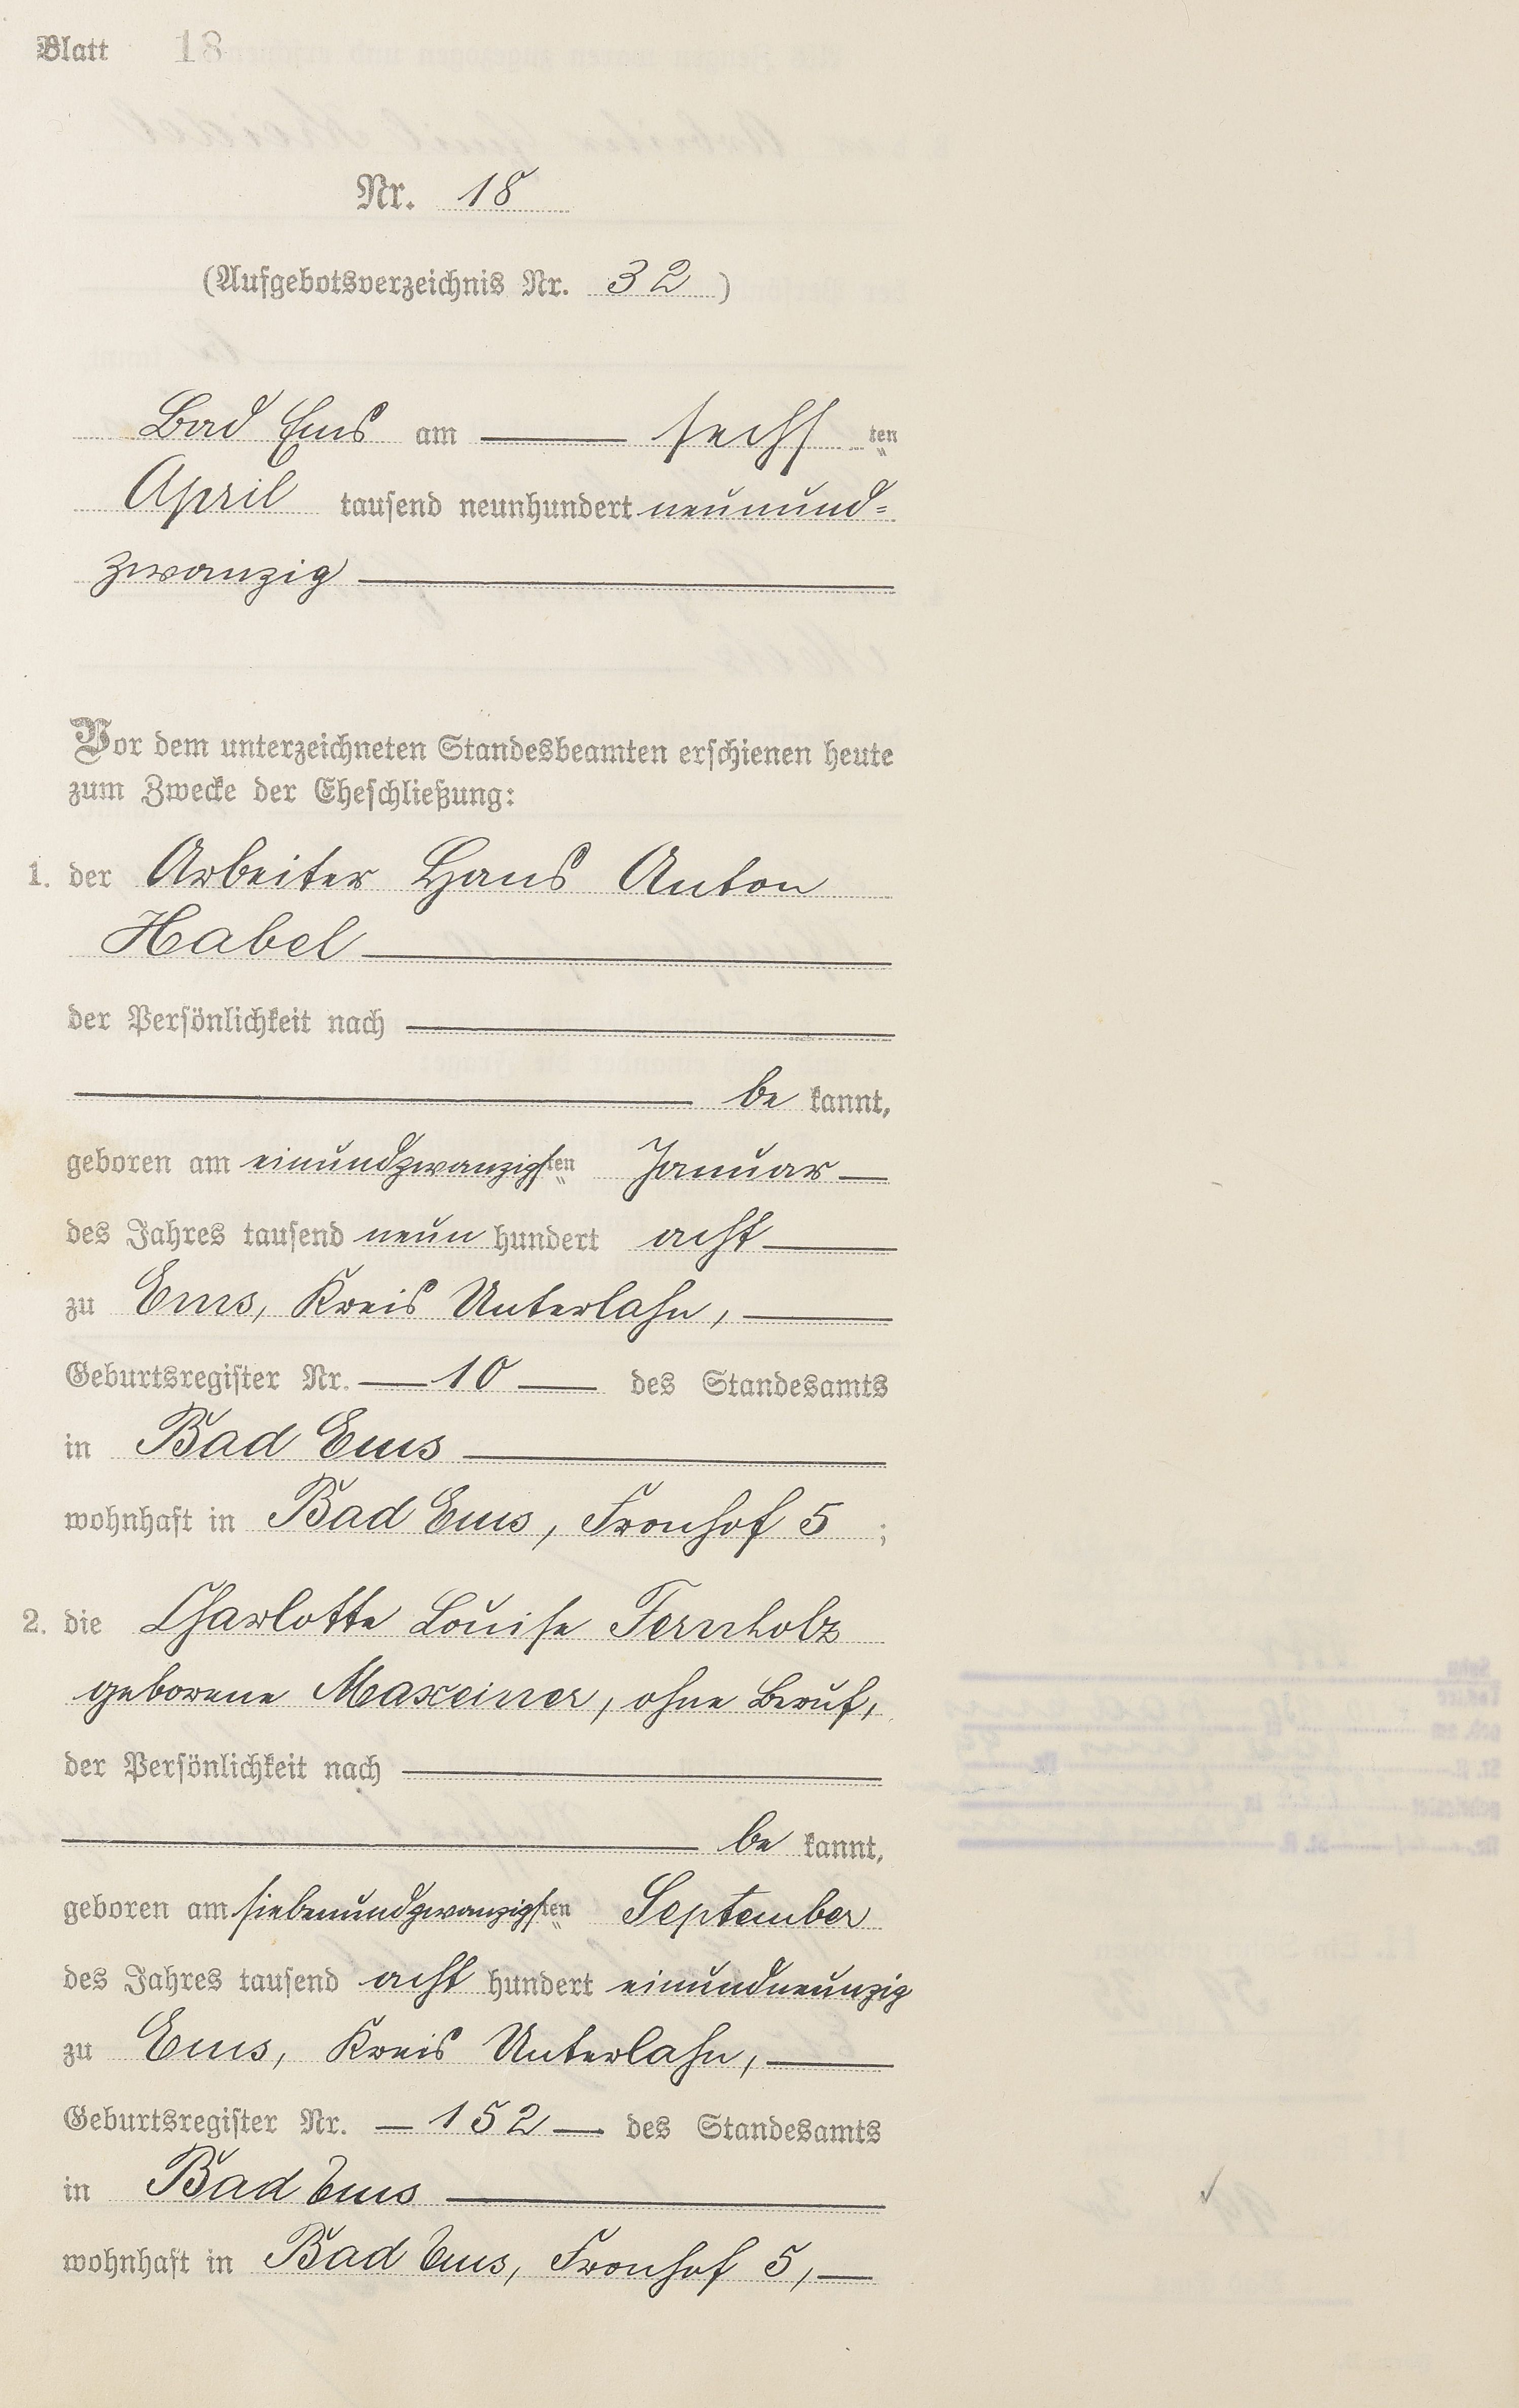 Blatt 18
Nr. 18
(Aufgebotsverzeichnis Nr. 32)
Bad Ems am sechsten
April tausend neunhundert neunund=
zwanzig
Vor dem unterzeichneten Standesbeamten erschienen heute
zum Zwecke der Eheschließung:
1. der Arbeiter Hans Anton
Habel
der Persönlichkeit nach
be kannt,
geboren am einundzwanzigsten Januar
des Jahres tausend neun hundert acht
zu Ems, Kreis Unterlahn,
Geburtsregister Nr. 10 des Standesamts
in Bad Ems
wohnhaft in Bad Ems, Fronhof 5;
2. die Charlotte Louise Fernholz
geborene Maxeiner, ohne Beruf,
der Persönlichkeit nach
be kannt,
geboren am siebenundzwanzigsten September
des Jahres tausend acht hundert einundneunzig
zu Ems, Kreis Unterlahn,
Geburtsregister Nr. 152 des Standesamts
in Bad Ems
wohnhaft in Bad Ems, Fronhof 5,